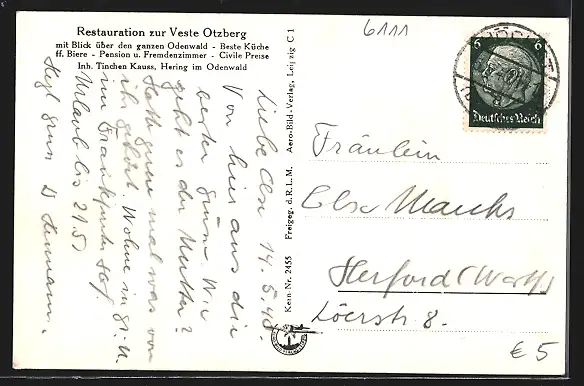 Restauration zur Veste Otzberg
mit Blick über den ganzen Odenwald - Beste Küche
ff. Biere - Pension u. Fremdenzimmer - Civile Preise
Inh. Tinchen Kauss, Hering im Odenwald
Liebe Else 14.5.40.
Von hier aus die
besten Grüsse. Wie
geht es der Mutter?
Hätte gern mal was von
gehört. Wohne in
im Frankfurter Hof.
Urlaub bis 21.5.
Hzl. Gruss
Kern-Nr. 2455 Freigeg. d. R. L. M. Aero-Bild-Verlag, Leipzig C 1
6111
6 6
Deutsches Reich
Fräulein
Else
Herford (Westf.)
8.
€ 5